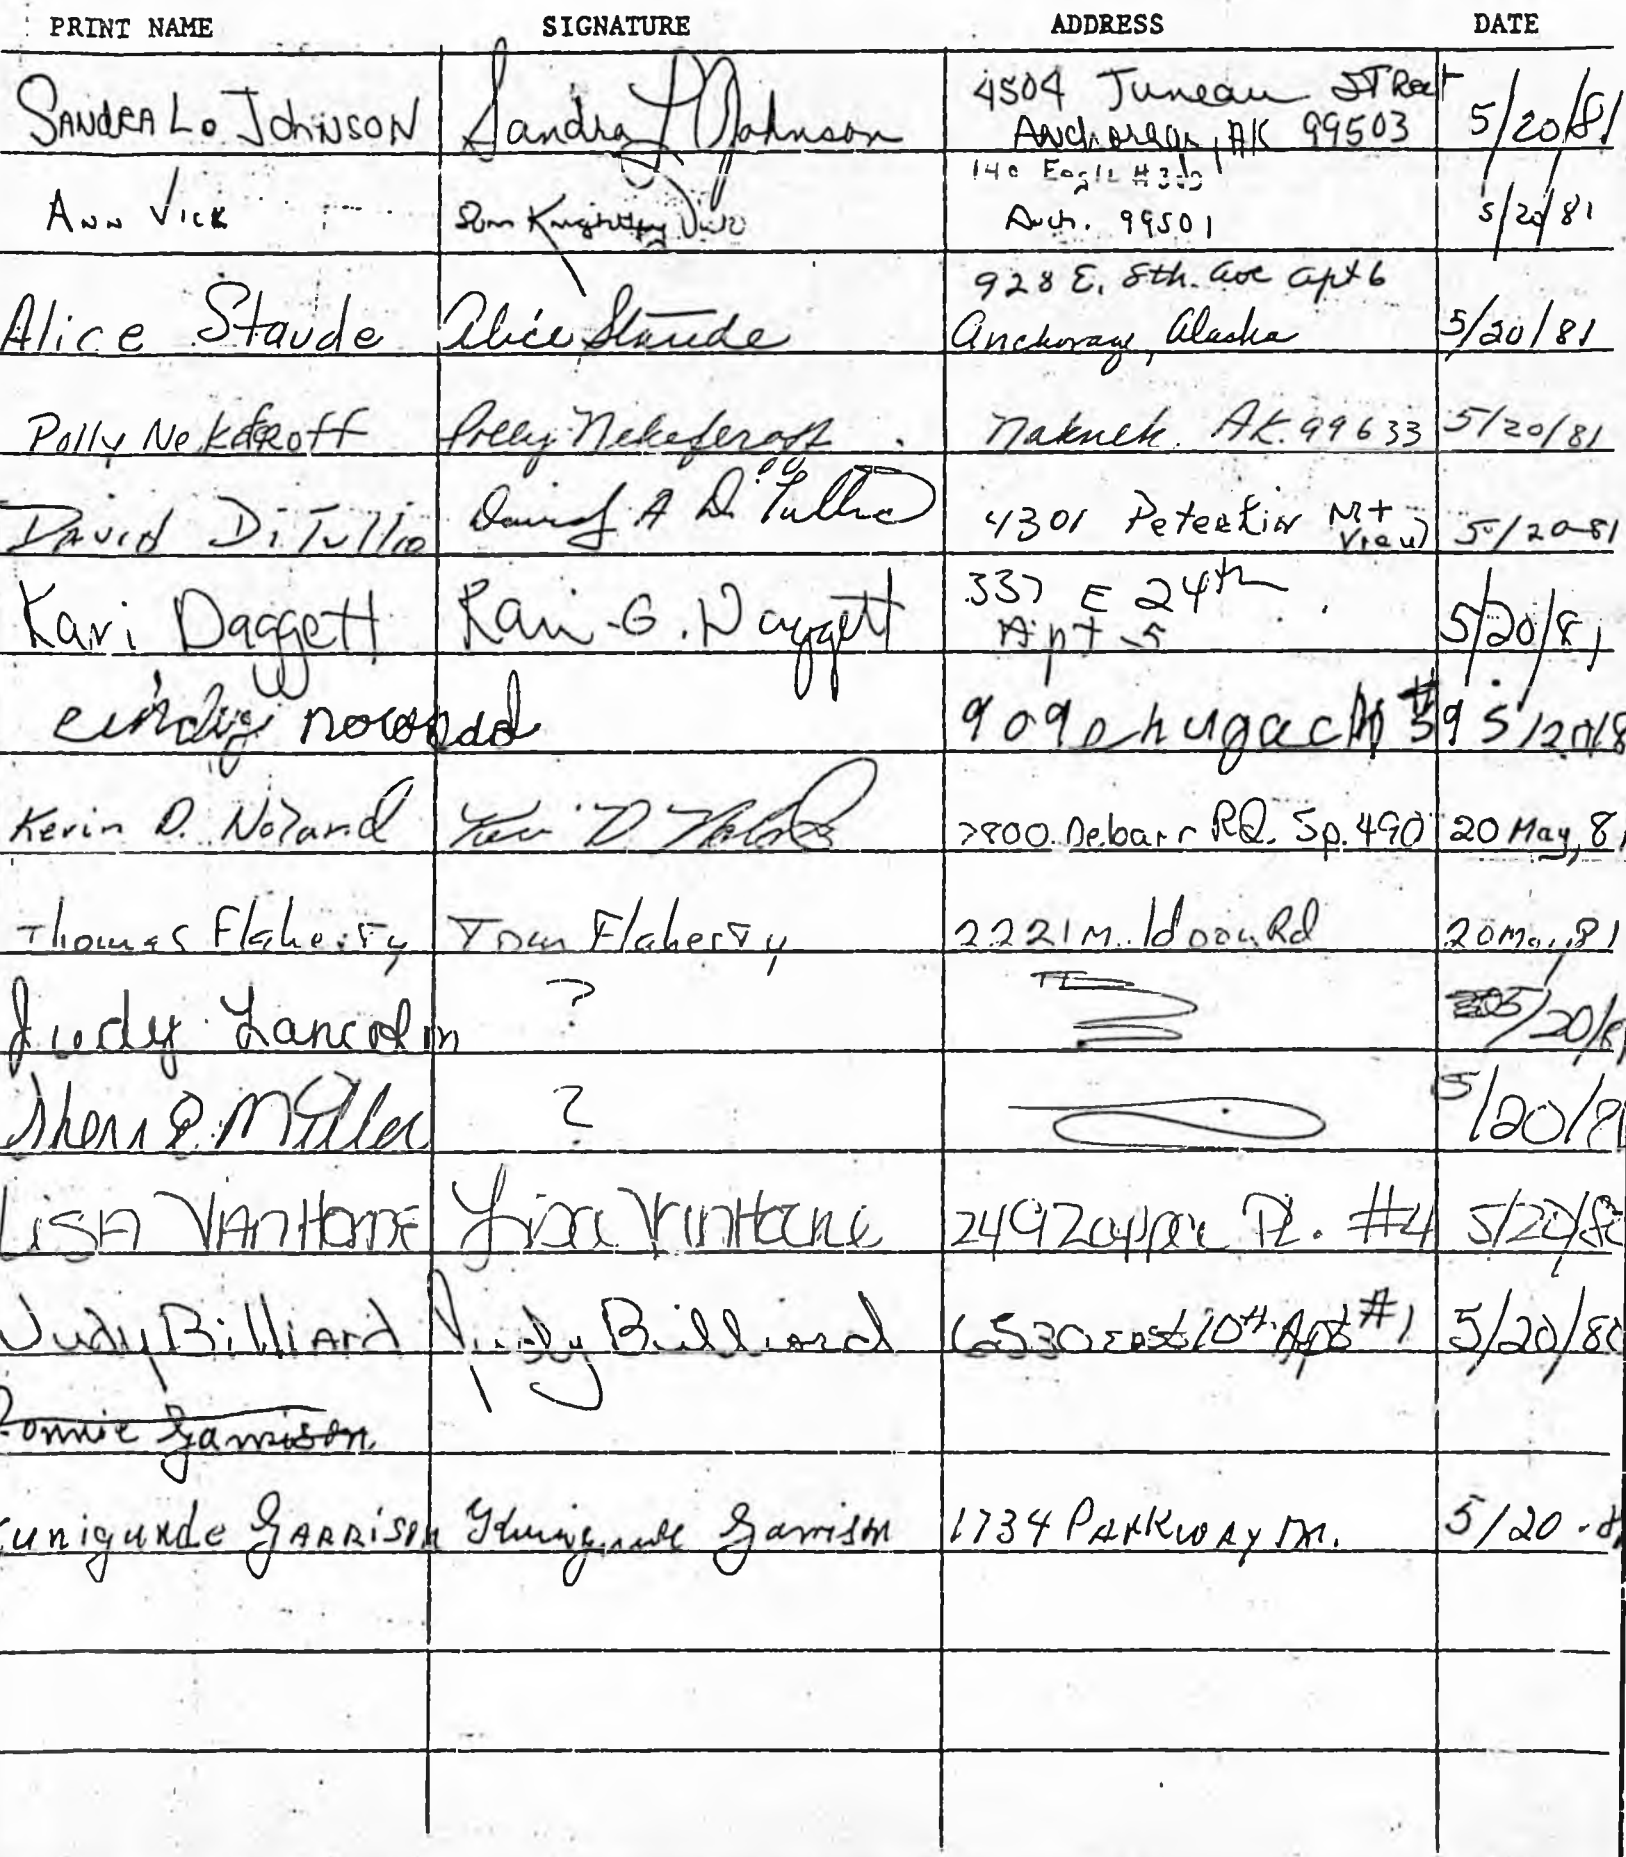 PRINT NAME SIGNATURE ADDRESS DATE
SANDRA L. JOHNSON Sandra L Johnson 4504 Juneau STReet 5/20/81
Anchorage, AK 99503
ANN VICK Ann Vick Eagle 5/20/81
Anch. 99501
Alice Staude Alice Staude 928 E. 8th. ave apt 6 5/20/81
Anchorage, Alaska
Polly Polly Naknek. AK. 99633 5/20/81
DAVID DiTullio David A DiTullio 4301 Peterkin Mt View 5/20-81
Kari Daggett Kari G. Daggett 337 E 24th 5/20/81
Apt 5
cindy 9090 chugach #59 5/20/8
Kevin D. Noland Kevin D. Noland 7800 Debarr RD. Sp. 490 20 May, 81
Thomas Flaherty Tom Flaherty 2221 Muldoon Rd 20 May 81
Judy ? 5/20/81
Miller ? 5/20/81
LiSA VANHORNE Lisa VanHorne 249 Pl. #4 5/20/80
Judy Billiard Judy Billiard 6530 East 10th Apt #1 5/20/80
Garrison
Kunigunde GARRISON Kunigunde Garrison 1734 PARKWAY DR. 5/20-81